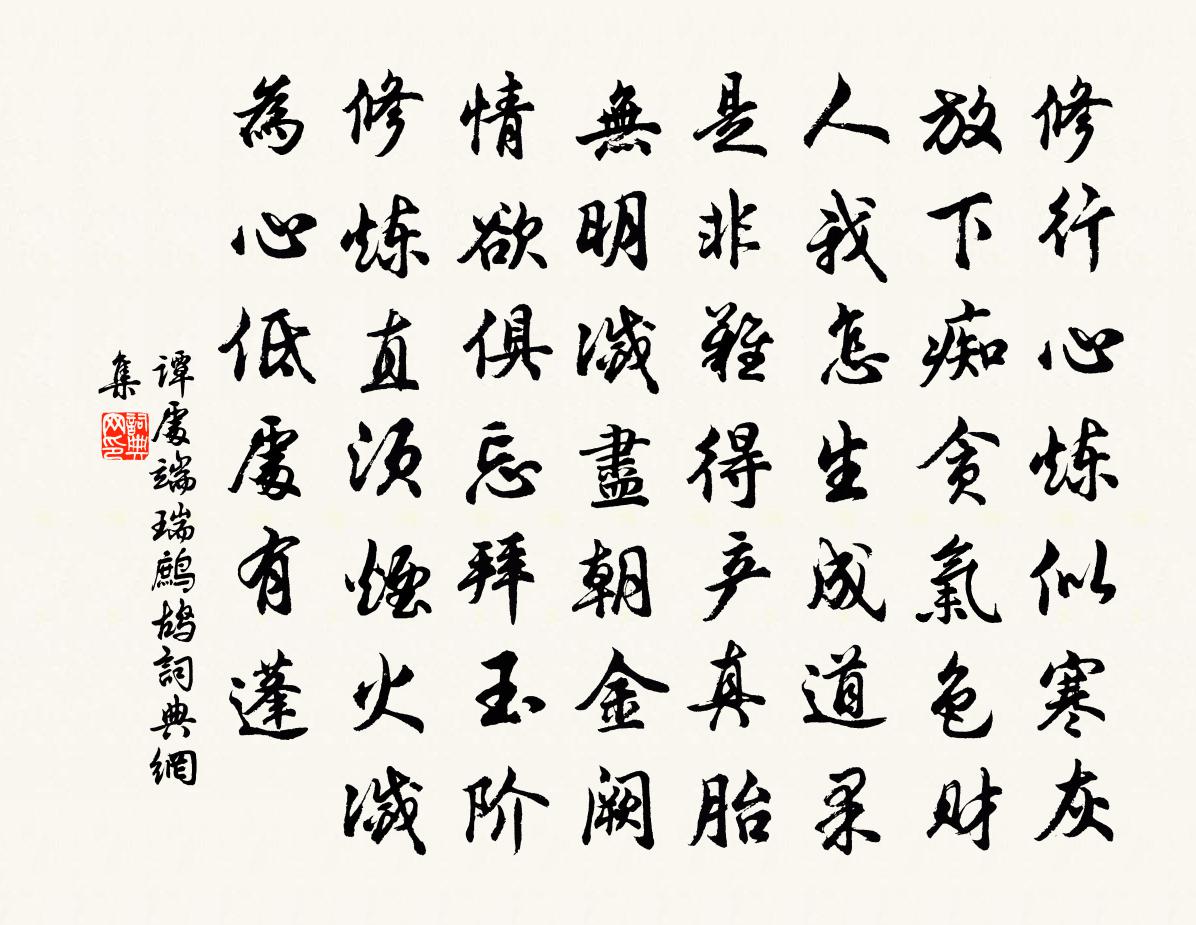 修行心炼似寒灰
放下痴贪氣色财
人我怎生成道果
是非難得产真胎
無明滅盡朝金阙
情欲俱忘拜玉阶
修炼直须煙火滅
為心低處有蓬
谭處端瑞鷓鴣詞典網
集
詞典网印